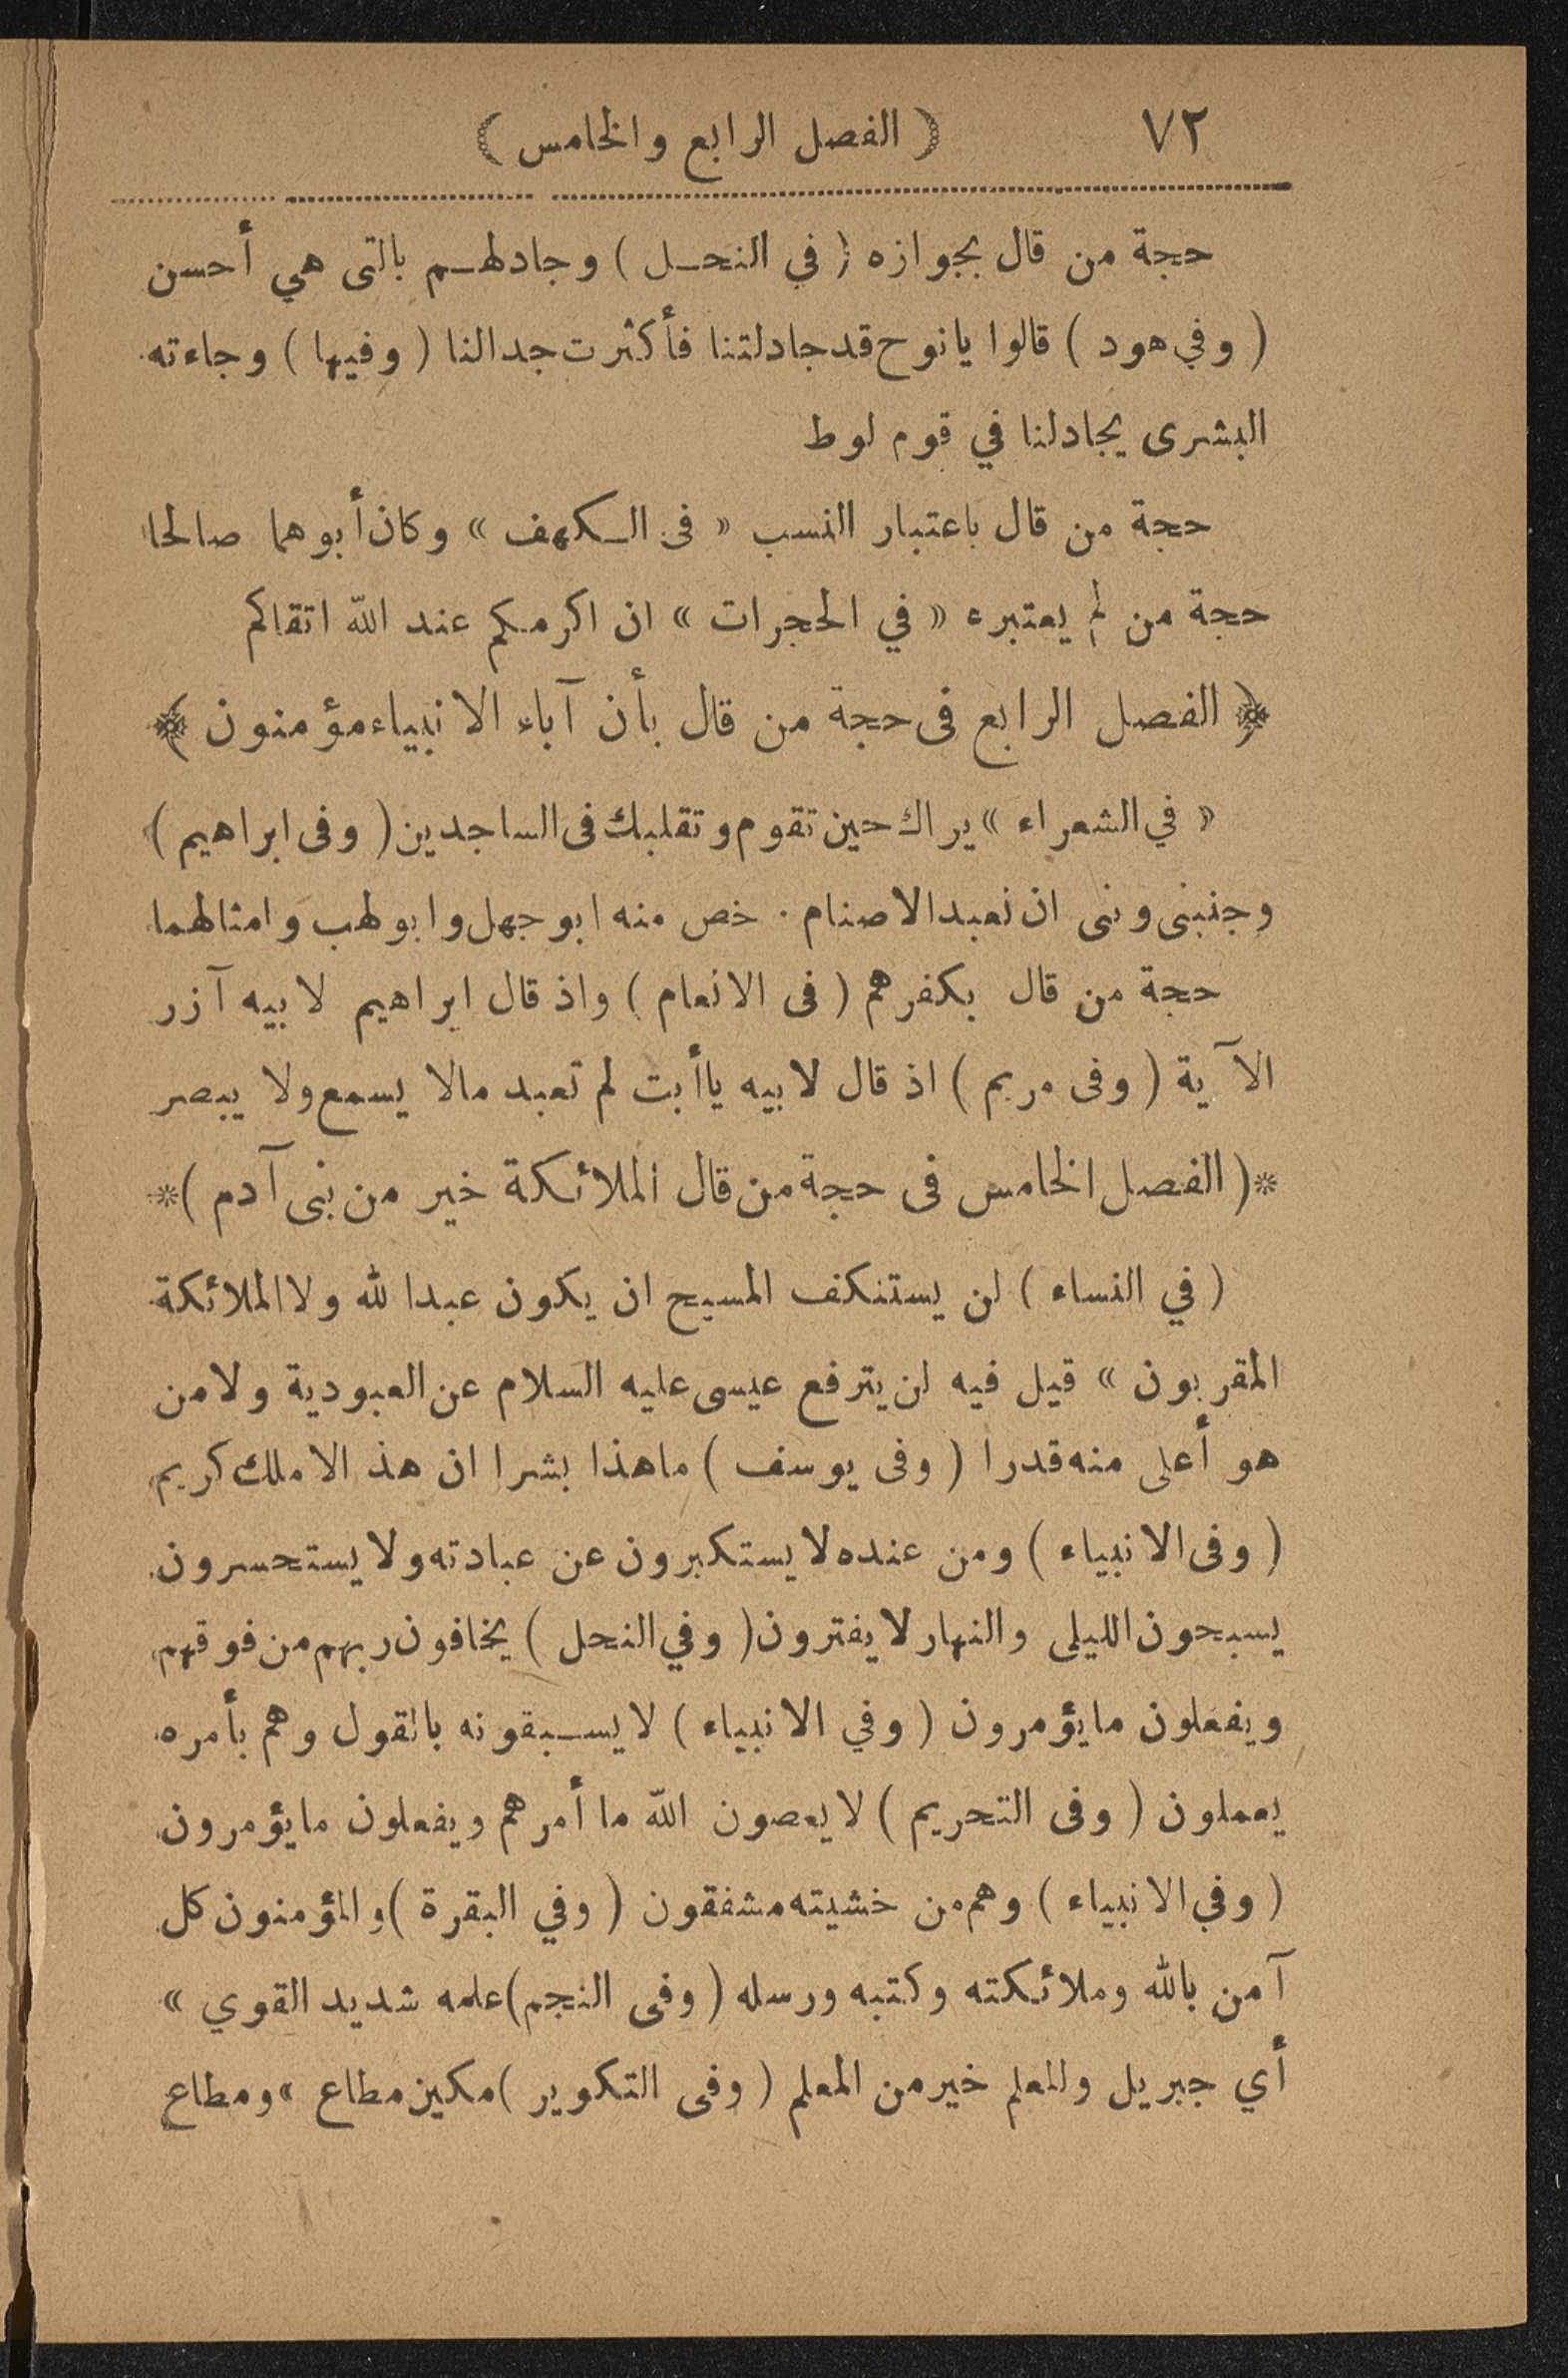 ٧٢ ( الفصل الرابع والخامس )
حجة من قال بجوازه ( في النحـل ) وجادلهـم بالتى هي أحسن
( وفي هود ) قالوا يانوح قد جادلتنا فأكثرت جدالنا ( وفيها ) وجاءته
البشرى يجادلنا في قوم لوط
حجة من قال باعتبار النسب « فى الـكهف » وكان أبوهما صالحا
حجة من لم يعتبره « في الحجرات » ان اكرمكم عند الله اتقاكم
﴿ الفصل الرابع فى حجة من قال بأن آباء الانبياء مؤمنون ﴾
« في الشعراء » يراك حين تقوم وتقلبك فى الساجدين ( وفى ابراهيم )
وجنبنى وبنى ان نعبد الاصنام . خص منه ابو جهل وابو لهب وامثالهما
حجة من قال بكفرهم ( فى الانعام ) واذ قال ابراهيم لابيه آزر
الآية ( وفى مريم ) اذ قال لابيه ياأبت لم تعبد مالا يسمع ولا يبصر
*( الفصل الخامس فى حجة من قال الملائكة خير من بنى آدم )*
( في النساء ) لن يستنكف المسيح ان يكون عبدا لله ولا الملائكة
المقربون » قيل فيه لن يترفع عيسى عليه السلام عن العبودية ولا من
هو أعلى منه قدرا ( وفى يوسف ) ماهذا بشرا ان هذ الا ملك كريم
( وفى الانبياء ) ومن عنده لا يستكبرون عن عبادته ولا يستحسرون
يسبحون الليلى والنهار لا يفترون ( وفي النحل ) يخافون ربهم من فوقهم
ويفعلون مايؤمرون ( وفي الانبياء ) لا يسـبقونه بالقول وهم بأمره
يعملون ( وفى التحريم ) لا يعصون الله ما أمرهم ويفعلون مايؤمرون
( وفي الانبياء ) وهم من خشيته مشفقون ( وفي البقرة ) والمؤمنون كل
آمن بالله وملائكته وكتبه ورسله ( وفى النجم ) علمه شديد القوي »
أي جبريل والمعلم خير من المعلم ( وفى التكوير ) مكين مطاع » ومطاع